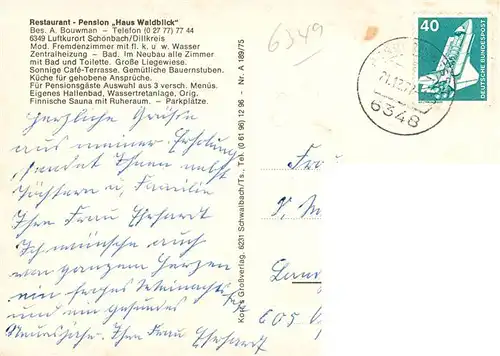 Restaurant - Pension „Haus Waldblick“
Bes. A. Bouwman – Telefon (0 27 77) 77 44
6349 Luftkurort Schönbach/Dillkreis
Mod. Fremdenzimmer mit fl. k. u. w. Wasser
Zentralheizung – Bad. Im Neubau alle Zimmer
mit Bad und Toilette. Große Liegewiese.
Sonnige Café-Terrasse. Gemütliche Bauernstuben.
Küche für gehobene Ansprüche.
Für Pensionsgäste Auswahl aus 3 versch. Menüs.
Eigenes Hallenbad, Wasserretanlage, Orig.
Finnische Sauna mit Ruheraum. – Parkplätze.
Herzliche Grüße
aus meiner Erholung
sendet Ihnen nebst
Töchtern u. Familie
Ihre Frau Ehrhardt
Ich wünsche auch
von ganzem Herzen
ein frohes Weihnachtsfest
und ein gesundes
Neuesjahr. Ihre Frau Ehrhardt
Verlag, 6231 Schwalbach/Ts., Tel. (0 61 96) 12 96 - Nr. A 189/75
6349
40
DEUTSCHE BUNDESPOST
6348
Frau
605